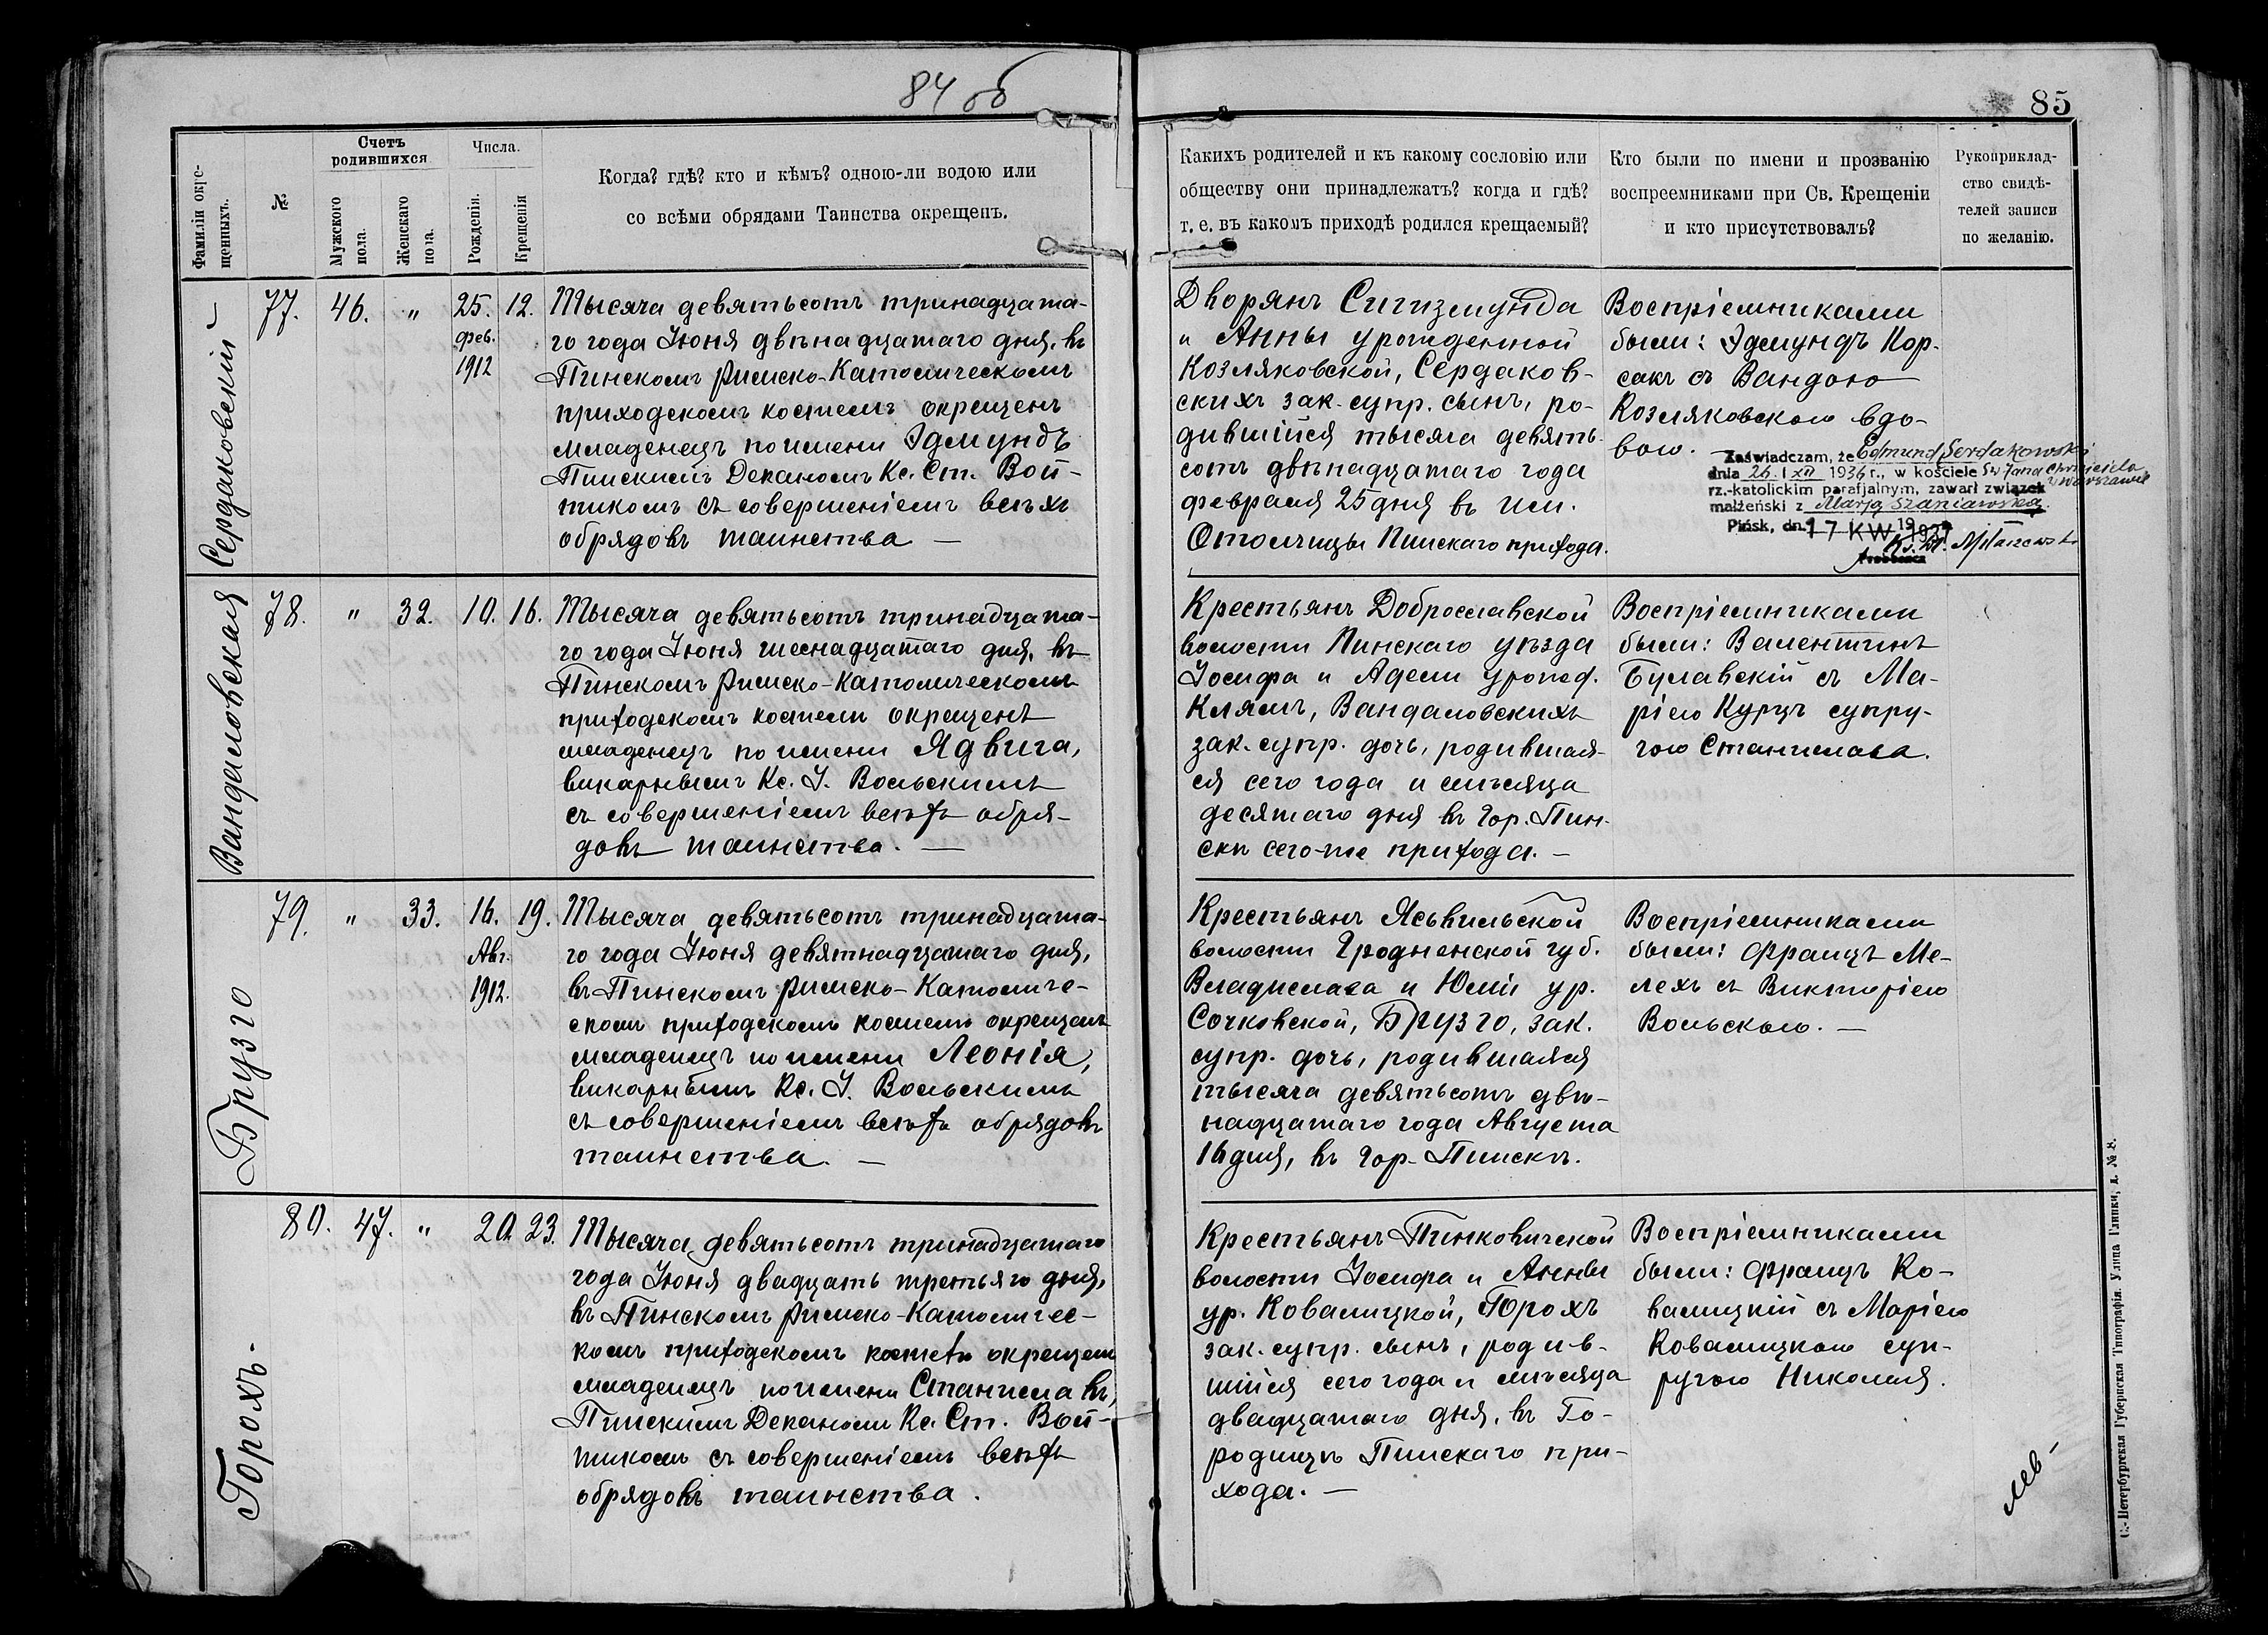 84 об
85
Фамиліи окре-
щенныхъ.
№
Счетъ
родившихся
Мужского
пола.
Женскаго
пола.
Числа.
Рожденія.
Крещенія
Когда? гдѣ? кто и кѣмъ? одною-ли водою или
со всѣми обрядами Таинства окрещенъ.
Какихъ родителей и къ какому сословію или
обществу они принадлежатъ? когда и гдѣ?
т. е. въ какомъ приходѣ родился крещаемый?
Кто были по имени и прозванію
воспреемниками при Св. Крещеніи
и кто присутствовалъ?
Рукоприклад-
ство свидѣ-
телей записи
по желанію.
Сердаковскій
77.
46.
"
25.
фев.
1912
12.
Тысяча девятьсотъ тринадцата-
го года Іюня двѣнадцатаго дня, въ
Пинскомъ Римско-Католическомъ
приходскомъ костелѣ окрещенъ
младенецъ по имени Эдмундъ
Пинскимъ Деканомъ Кс. Ст. Вой-
тикомъ съ совершеніемъ всѣхъ
обрядовъ таинства —
Дворянъ Сигизмунда
и Анны урожденной
Козляковской, Сердаков-
скихъ зак. супр. сынъ, ро-
дившійся тысяча девять-
сотъ двѣнадцатаго года
февраля 25 дня въ им.
Отолчицы Пинскаго прихода.
Воспріемниками
были: Эдмундъ Кор-
сакъ съ Вандою
Козляковскою вдо-
вою.
Zaświadczam, że Edmund Serdakowski
dnia 26. I XII 1936 r., w kościele Sw Jana Chrzciciela
w Warszawie
rz.-katolickim parafjalnym, zawarł związek
małżeński z Marją Szaniawską
Pińsk, dn. 17 KW 19 1937
Proboszcz
Вандаловская
78.
"
32.
10.
16.
Тысяча девятьсотъ тринадцата-
го года Іюня шеснадцатаго дня, въ
Пинскомъ Римско-Католическомъ
приходскомъ костелѣ окрещенъ
младенецъ по имени Ядвига,
викарнымъ Кс. І. Вольскимъ
съ совершеніемъ всѣхъ обря-
довъ таинства. —
Крестьянъ Доброславской
волости Пинскаго уѣзда
Іосифа и Адели урожд.
Клямъ, Вандаловскихъ
зак. супр. дочь, родившая-
ся сего года и мѣсяца
десятаго дня въ гор. Пин-
скѣ сего-же прихода. —
Воспріемниками
были: Валентинъ
Булавскій съ Ма-
ріею Курцъ супру-
гою Станислава.
Брузго
79.
"
33.
16.
Авг.
1912.
19.
Тысяча девятьсотъ тринадцата-
го года Іюня девятнадцатаго дня,
въ Пинскомъ Римско-Католиче-
скомъ приходскомъ костелѣ окрещенъ
младенецъ по имени Леонія,
викарнымъ Кс. І. Вольскимъ
съ совершеніемъ всѣхъ обрядовъ
таинства. —
Крестьянъ Ясвильской
волости Гродненской губ.
Владислава и Юліи ур.
Сочковской, Брузго, зак.
супр. дочь, родившаяся
тысяча девятьсотъ двѣ-
надцатаго года Августа
16 дня, въ гор. Пинскѣ.
Воспріемниками
были: Францъ Ме-
лехъ съ Викторіею
Вольскою. —
Горохъ.
80.
47.
"
20.
23.
Тысяча девятьсотъ тринадцатаго
года Іюня двадцать третьяго дня,
въ Пинскомъ Римско-Католичес-
комъ приходскомъ костелѣ окрещенъ
младенецъ по имени Станиславъ,
Пинскимъ Деканомъ Кс. Ст. Вой-
тикомъ съ совершеніемъ всѣхъ
обрядовъ таинства.
Крестьянъ Пинковичской
волости Іосифа и Анны
ур. Ковалицкой, Горохъ
зак. супр. сынъ, родив-
шійся сего года и мѣсяца
двадцатаго дня, въ Го-
родищѣ Пинскаго при-
хода. —
Воспріемниками
были: Францъ Ко-
валицкій съ Маріею
Ковалицкою суп-
ругою Николая.
С.-Петербургская Губернская Типографія. Улица Глинки, д. № 8.